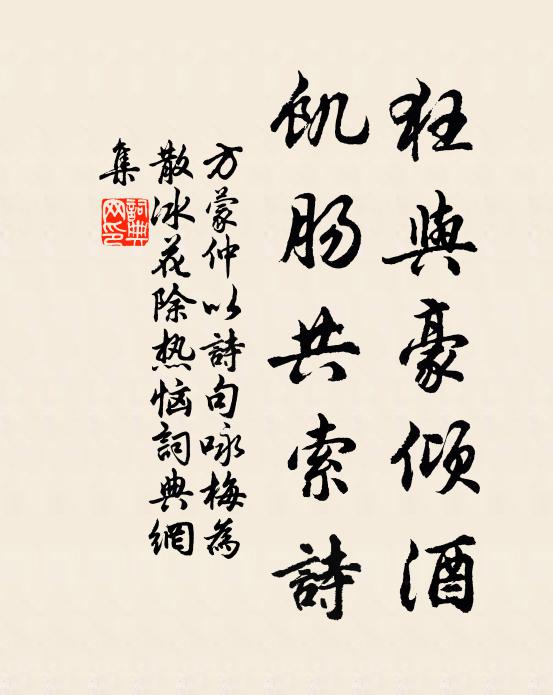 狂與豪倾酒
飢肠共索詩
方蒙仲以詩句咏梅為
散冰花除热恼詞典網
集
詞典
网印